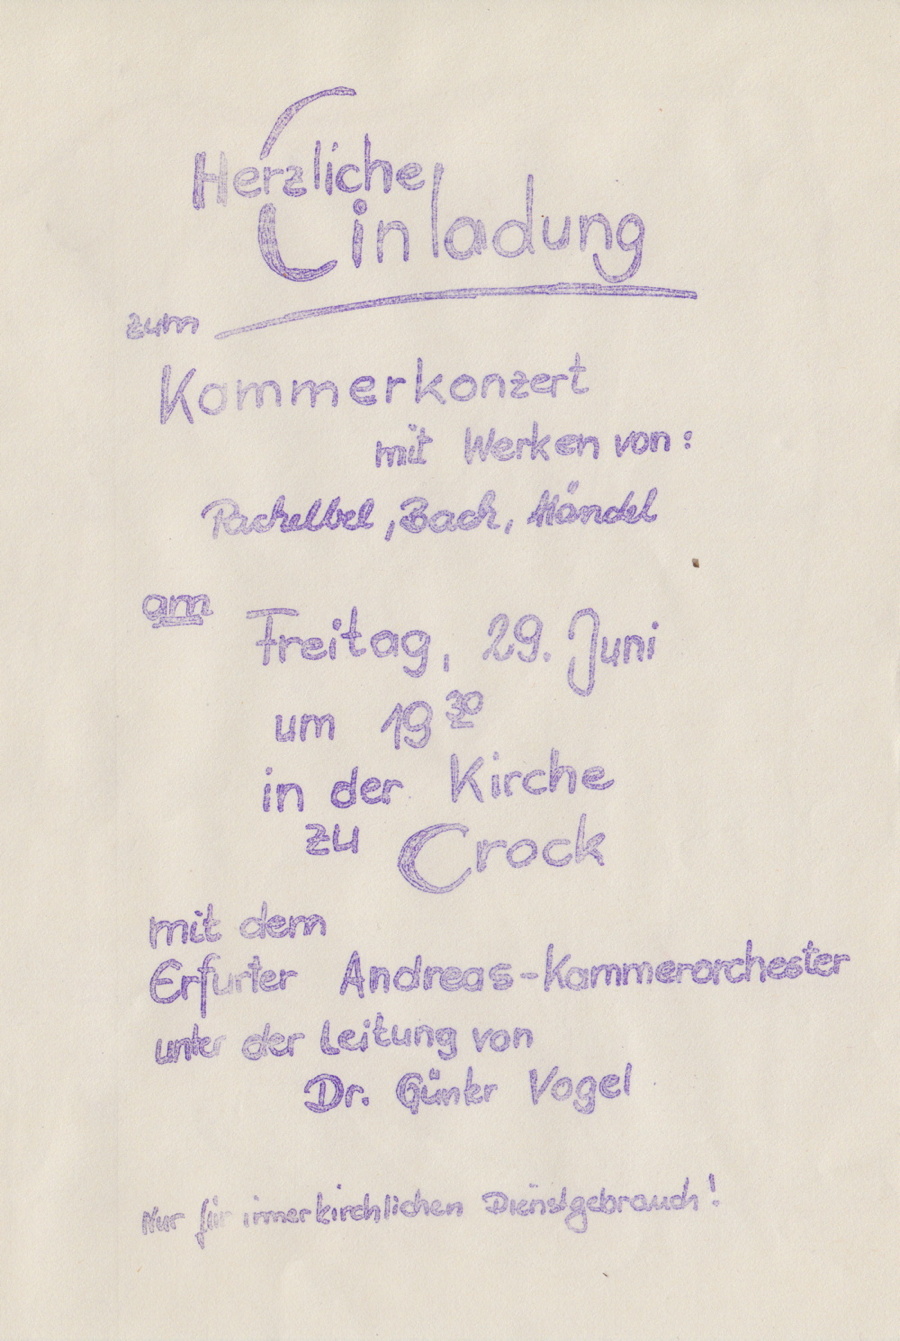 Herzliche
Einladung
zum
Kammerkonzert
mit Werken von:
Pachelbel, Bach, Händel
am
Freitag, 29. Juni
um 19 30
in der Kirche
zu Crock
mit dem
Erfurter Andreas-Kammerorchester
unter der Leitung von
Dr. Günter Vogel
Nur für innerkirchlichen Dienstgebrauch!